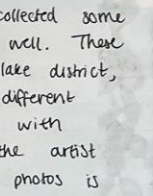 collected some
well. These
lake district,
different
with
the artist
photos is